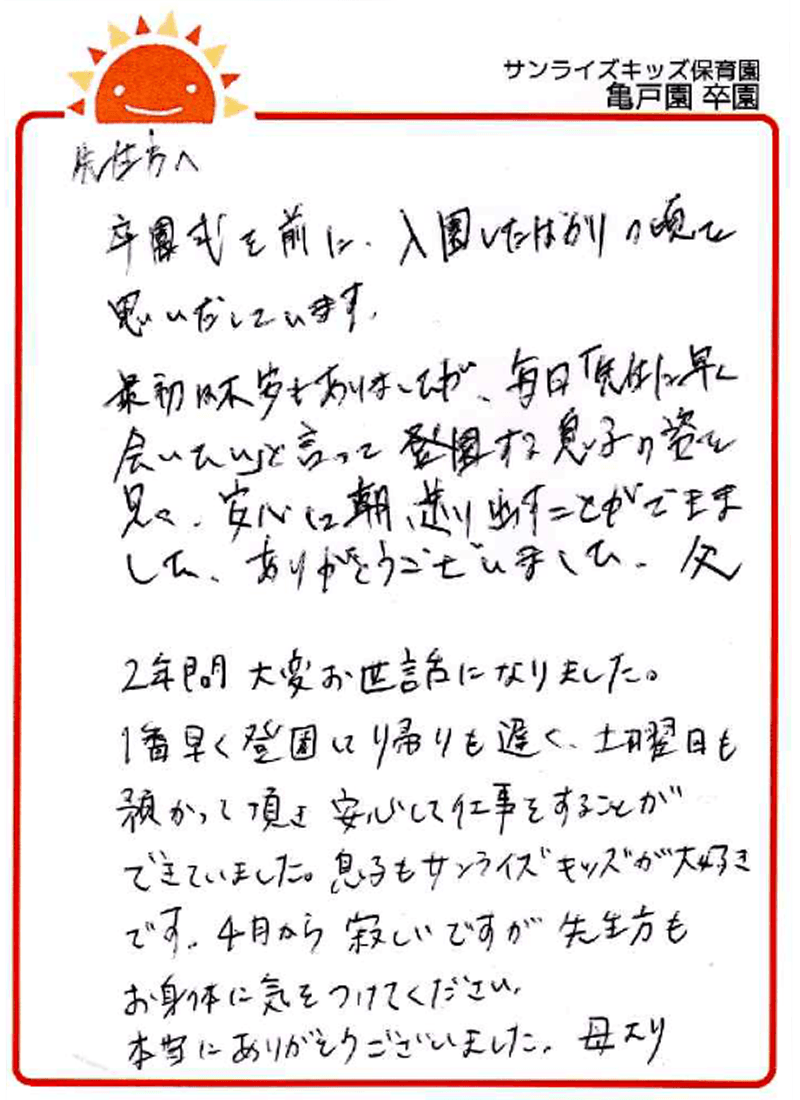 サンライズキッズ保育園
亀戸園 卒園
先生方へ
卒園式を前に、入園したばかりの頃を
思いだしています。
最初は不安もありましたが、毎日「先生に早く
会いたい」と言って登園する息子の姿を
見て、安心して朝、送り出すことができま
した。ありがとうございました。父
2年間大変お世話になりました。
1番早く登園して帰りも遅く、土曜日も
預かって頂き安心して仕事をすることが
できていました。息子もサンライズキッズが大好き
です。4月から寂しいですが先生方も
お身体に気をつけてください。
本当にありがとうございました。母より